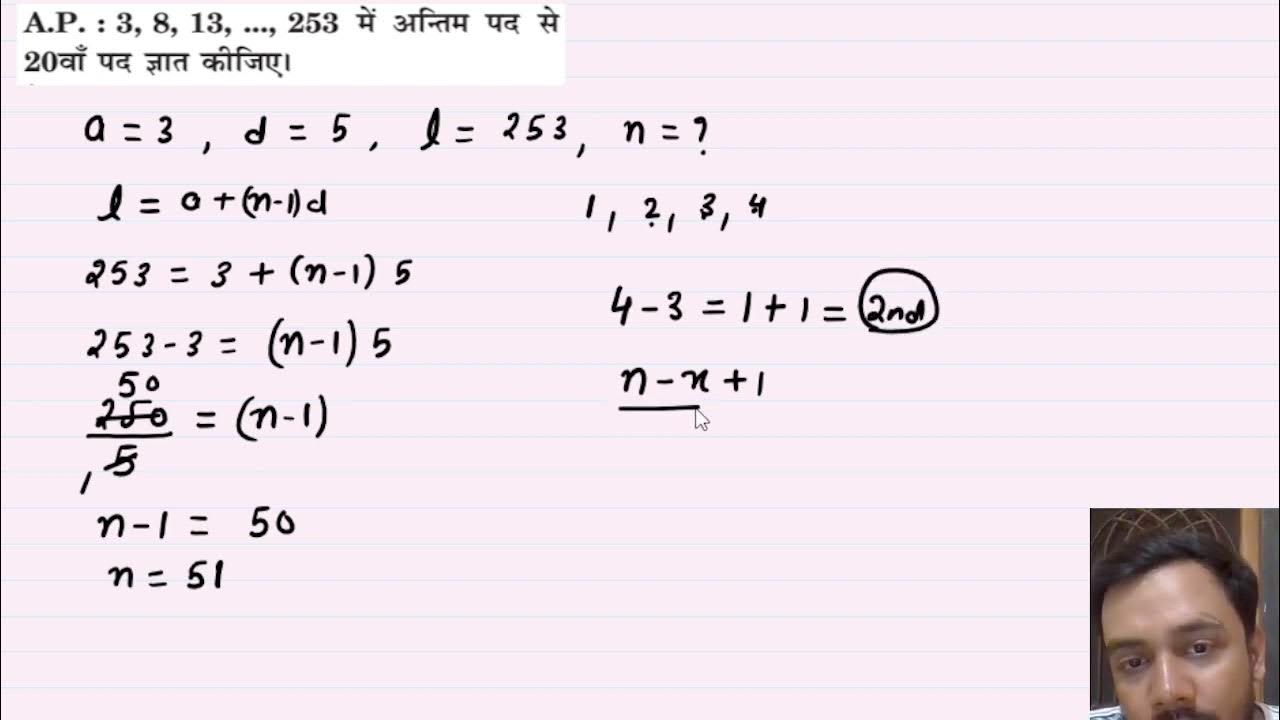 A.P. : 3, 8, 13, ..., 253 में अन्तिम पद से
20वाँ पद ज्ञात कीजिए।
a = 3 , d = 5 , l = 253, n = ?
l = a + (n-1)d
1, 2, 3, 4
253 = 3 + (n-1) 5
4 - 3 = 1 + 1 = 2nd
253 - 3 = (n-1) 5
n - x + 1
50
250 = (n-1)
1 5
n - 1 = 50
n = 51